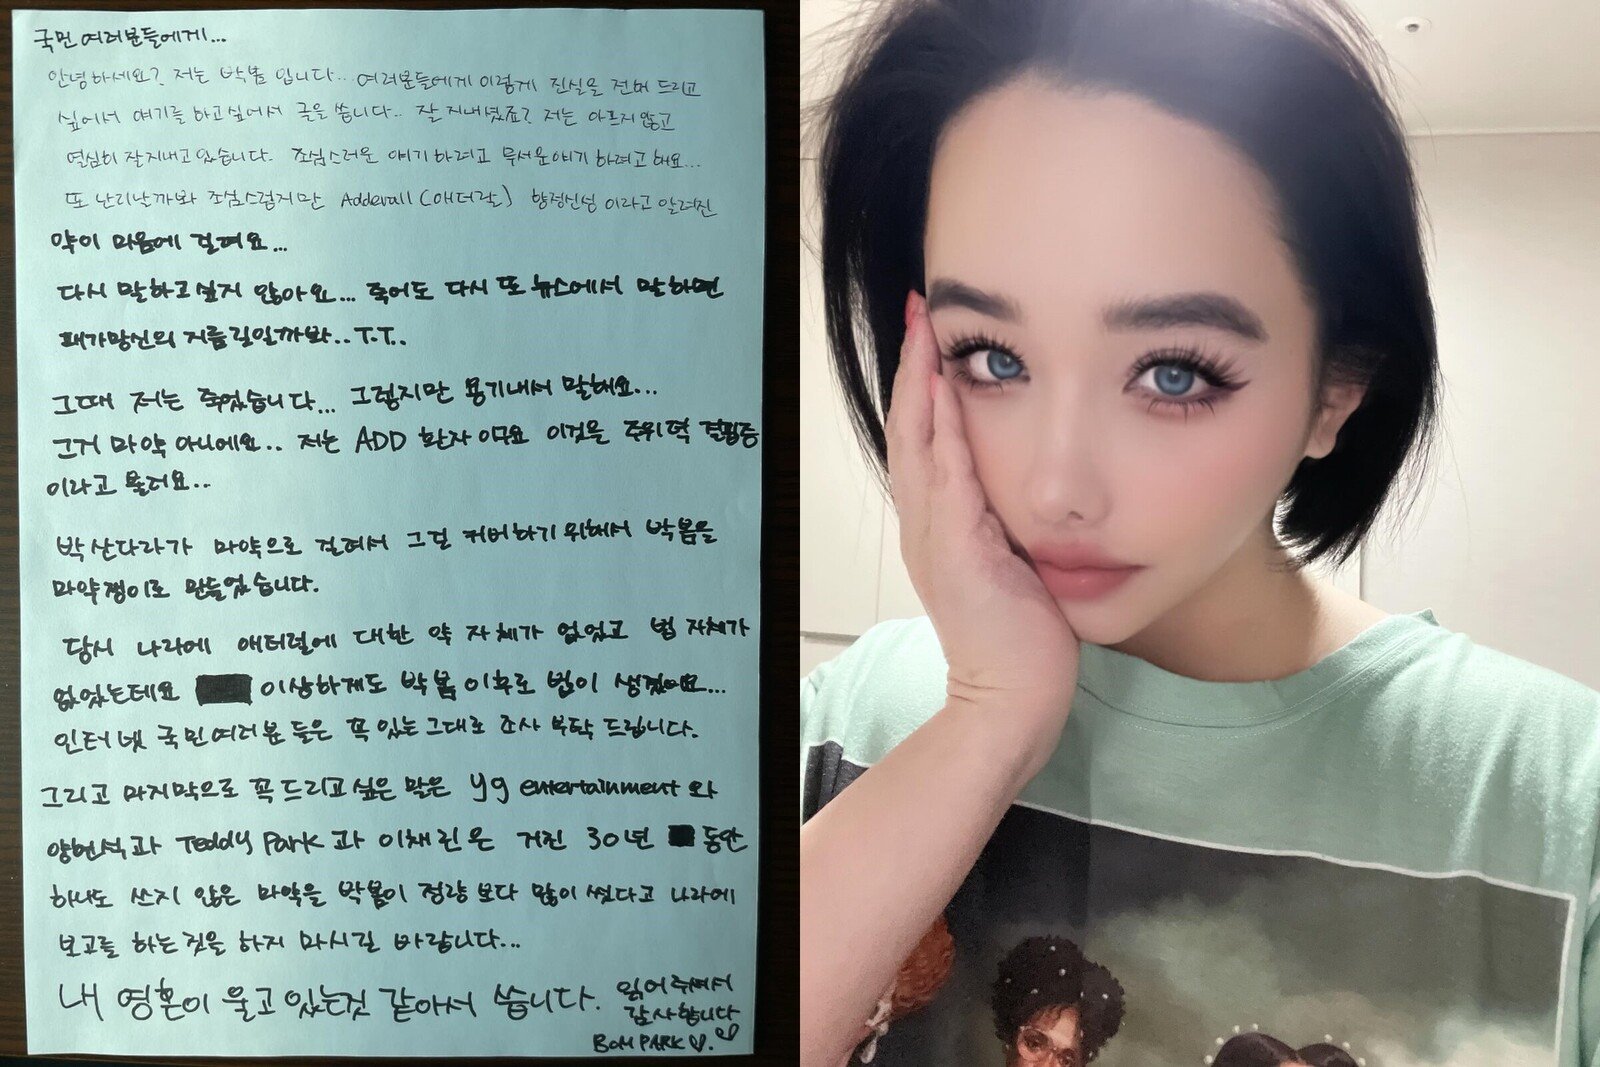 국민 여러분들에게...
안녕하세요? 저는 박봄 입니다... 여러분들에게 이렇게 진실을 전해 드리고
싶어서 얘기를 하고싶어서 글을 씁니다.. 잘 지내셨죠? 저는 아프지않고
열심히 잘지내고있습니다. 조심스러운 얘기하려고 무서운얘기 하려고 해요...
또 난리날까봐 조심스럽지만 Adderall (애더랄) 향정신성 이라고 알려진
약이 마음에 걸려요...
다시 말하고싶지 않아요... 죽어도 다시 또 뉴스에서 말하면
패가망신의 지름길일까봐.. T.T..
그때 저는 죽었습니다... 그렇지만 용기내서 말해요...
그거 마약 아니에요.. 저는 ADD 환자이구요 이것은 주위력 결핍증
이라고 불려요..
박산다라가 마약으로 걸려서 그걸 커버하기위해서 박봄을
마약쟁이로 만들었습니다.
당시 나라에 애터럴에 대한 약 자체가 없었고 법 자체가
없었는데요 이상하게도 박봄이후로 법이 생겼어요...
인터넷 국민여러분들은 꼭 있는그대로 조사 부탁 드립니다.
그리고 마지막으로 꼭드리고싶은 말은 yg entertainment 와
양현석과 Teddy Park과 이채린은 거진 30년 동안
하나도 쓰지 않은 마약을 박봄이 정량보다 많이 썼다고 나라에
보고를 하는것을 하지 마시길 바랍니다...
내 영혼이 울고 있는것 같아서 씁니다. 읽어주셔서
감사합니다♡
BOM PARK ♡.